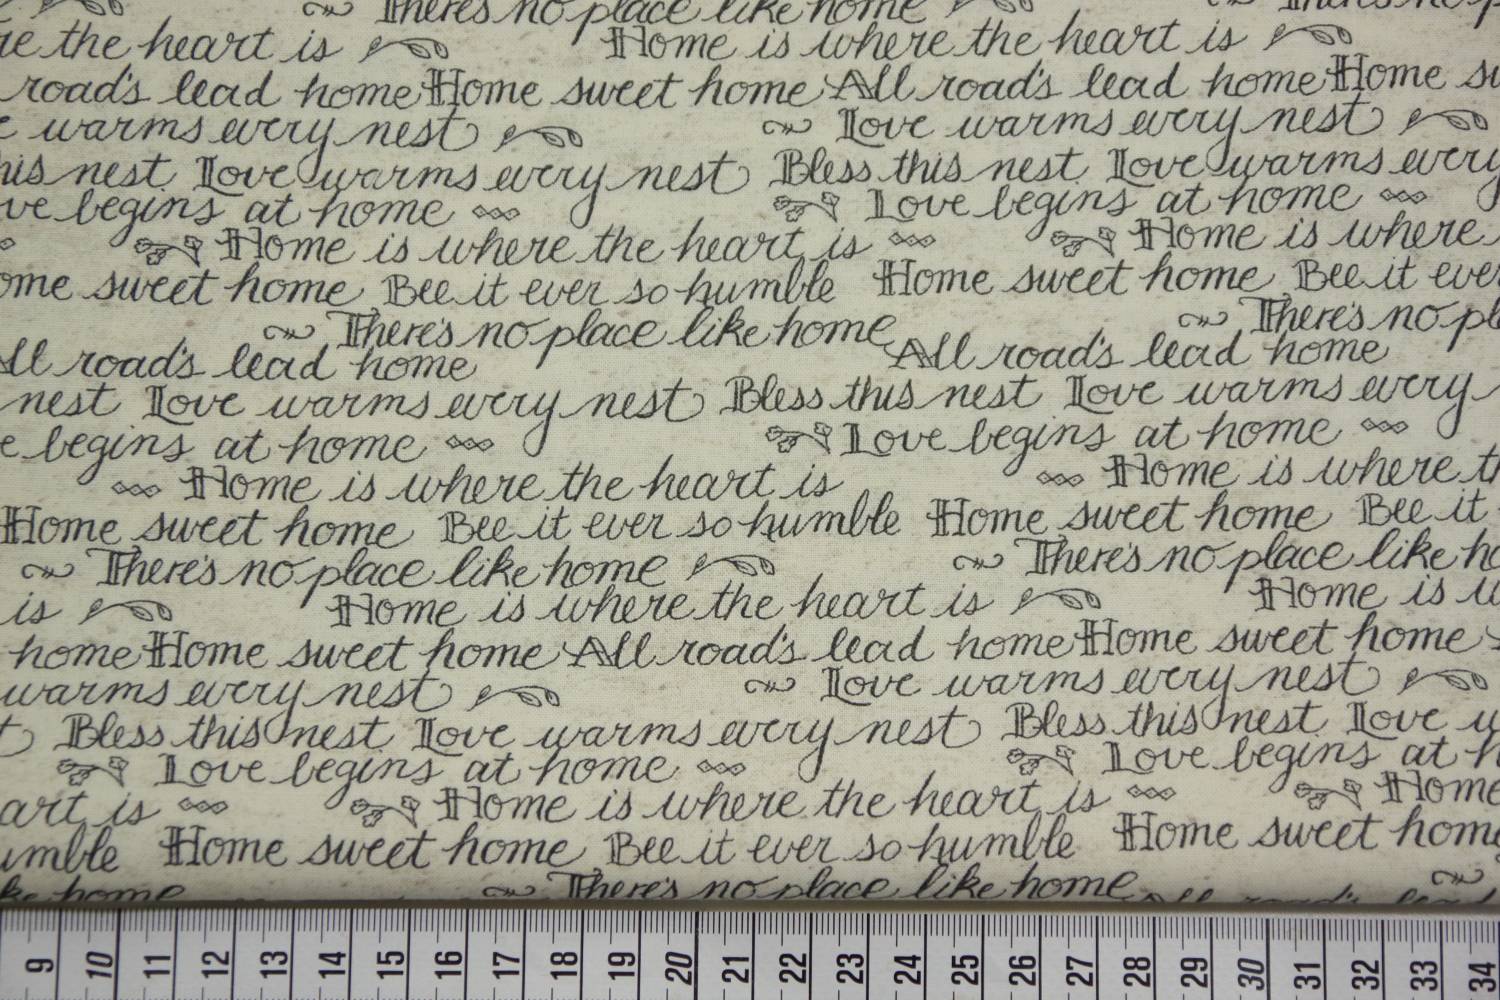 There's no place like home There's no
the heart is Home is where the heart is
road's lead home Home sweet home All road's lead home Home
warms every nest Love warms every nest
nest Love warms every nest Bless this nest Love warms every
begins at home Love begins at home
Home is where the heart is Home is where
sweet home Bee it ever so humble Home sweet home Bee it
There's no place like home There's no
All road's lead home All road's lead home
nest Love warms every nest Bless this nest Love warms every
begins at home Love begins at home
Home is where the heart is Home is where
Home sweet home Bee it ever so humble Home sweet home Bee it
There's no place like home There's no place like
is Home is where the heart is Home is
home Home sweet home All road's lead home Home sweet home
warms every nest Love warms every nest
Bless this nest Love warms every nest Bless this nest Love
Love begins at home Love begins at
is Home is where the heart is Home
Home sweet home Bee it ever so humble Home sweet home
home There's no place like home All road's lead
9 10 11 12 13 14 15 16 17 18 19 20 21 22 23 24 25 26 27 28 29 30 31 32 33 34